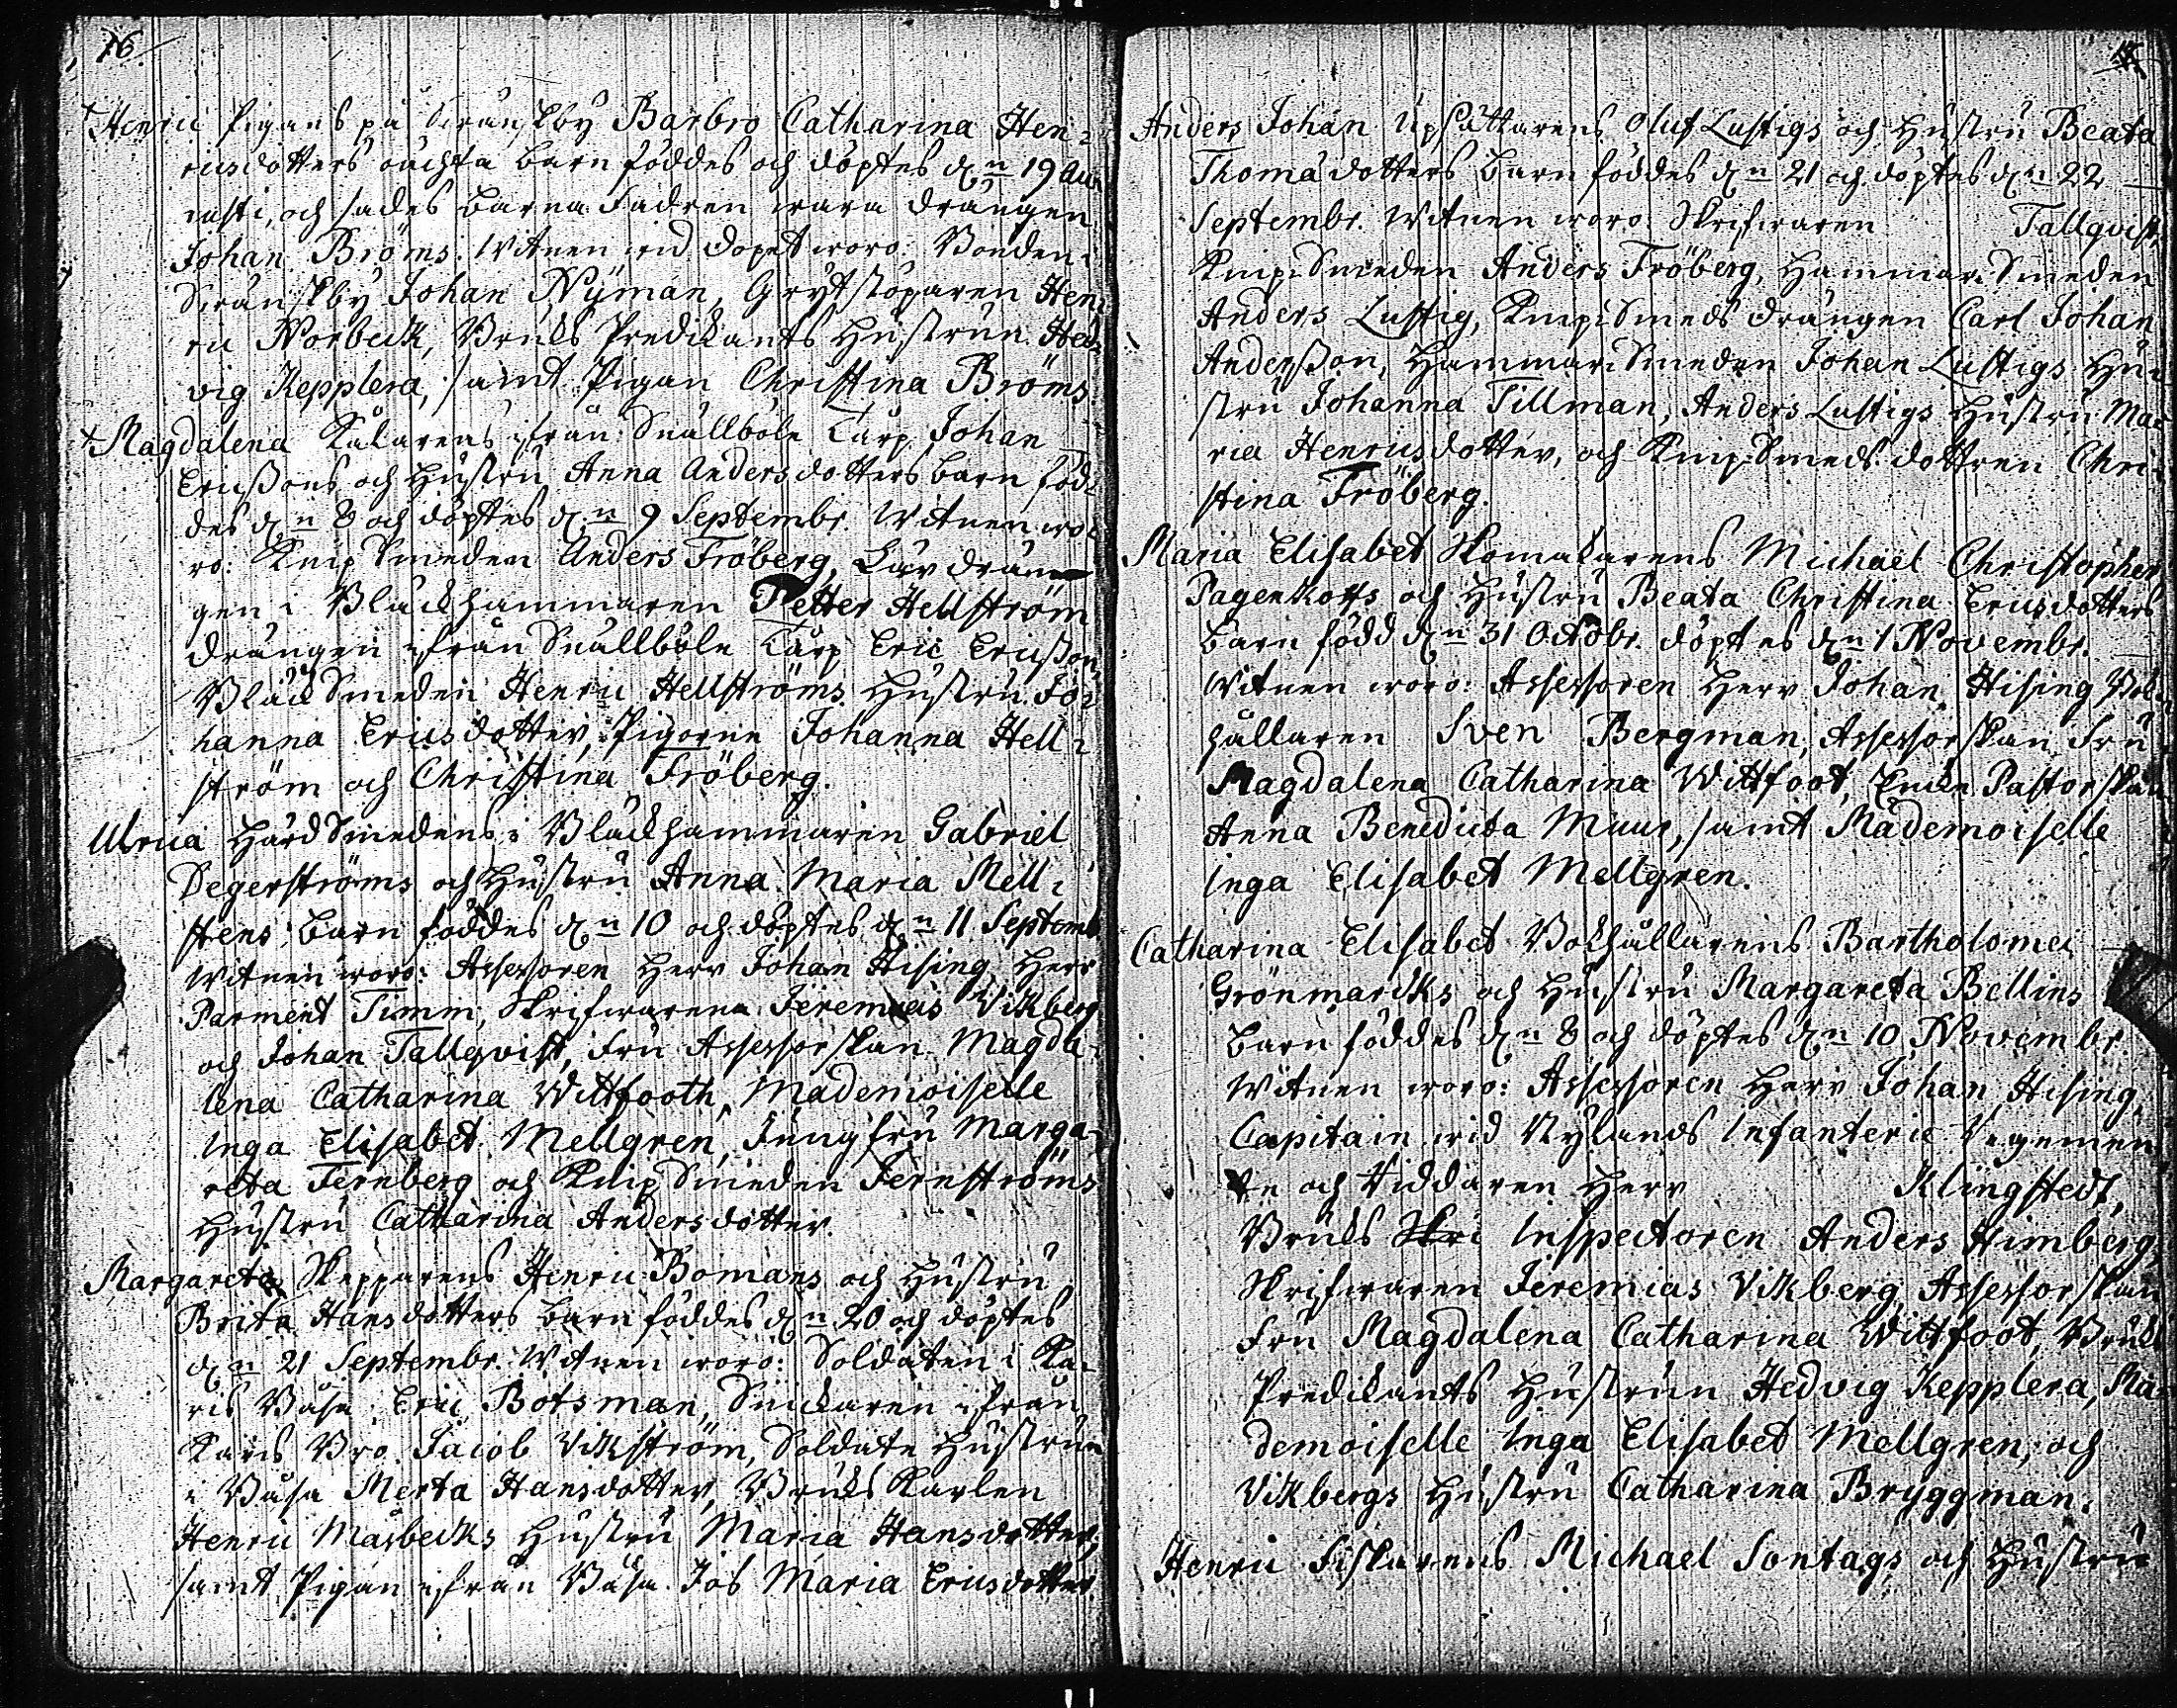 16
+Henric Pigans på Skrånskby Barbro Catharina Hen=
ricsdotters oächta barn föddes och döptes d. n 19 Au=
gusti, och sades barna Fadren wara drängen
Johan Bröms. Witnen wid dopet woro: Bonden i
Skrånskby Johan Nyman, Grytstöparen Hen=
ric Norbeck, Bruks Predikants Hustrun Hed=
vig Kepplera, samt Pigan Christina Bröms.
+Magdalena Kålarens ifrån Snällböle Torp Johan
Ericssons och Hustru Anna Andersdotters barn föd=
des d. n 8 och döptes d. n 9 Septembr. Witnen wo=
ro: Knip Smeden Anders Fröberg, drän
gen i Bläckhammaren Petter Hellström
drängen ifrån Snällböle Torp Eric Ericsson
Bläck Smeden Henric Hellströms Hustru Jo=
hanna Ericsdotter, Pigorne Johanna Hell=
ström och Christina Fröberg.
Ulrica Härd Smedens i Bläckhammaren Gabriel
Degerströms och Hustru Anna Maria Mell=
stens barn föddes d. n 10 och döptes d. n 11 Septemb
Witnen woro: Assessoren Herr Johan Hising, Herr
Parment Timm, Skrifwarena Jeremias Vikberg
och Johan Tallqvist, Fru Assessorskan Magda=
lena Catharina Wittfooth, Mademoiselle
Inga Elisabet Mellgren, Jungfru Marga=
reta Fernberg och Knip Smeden Fernströms
Hustru Catharina Andersdotter.
Margareta Skepparens Henric Bomans och Hustru
Brita Hansdotters barn föddes d. n 20 och döptes
d. n 21 Septembr. Witnen woro: Soldaten i Ka=
ris Båsa Eric Botsman, Snickaren ifrån
Karis Bro Jacob Vikström, Soldate Hustrun
i Båsa Merta Hansdotter, Bruks Karlen
Henric Masbecks Hustru Maria Hansdotter,
samt Pigan ifrån Båsa Jos Maria Ericsdotter.
Anders Johan Upsättarens Oluf Lustigs och Hustru Beata
Thomædotters barn föddes d. n 21 och döptes d. n 22
Septembr. Witnen woro Skrifwaren Tallqvist,
Knip-Smeden Anders Fröberg, Hammar-Smeden
Anders Lustig, Knip-Smeds drängen Carl Johan
Andersson, Hammar-Smeden Johan Lustigs Hu=
stru Johanna Tillman, Anders Lustigs Hustru Ma=
ria Henricsdotter, och Knip-Smeds dottren Chri=
stina Fröberg.
Maria Elisabet Skomakarens Michael Christopher
Pagenkopfs och Hustru Beata Christina Ericsdotters
barn född d. n 31 Octobr. döptes d. n 1 Novembr.
Witnen woro: Assessoren Herr Johan Hising, Bok=
hållaren Sven Bergman, Assessorskan Fru
Magdalena Catharina Wittfoot, Encke Pastorskan
Anna Benedicta Muur, samt Mademoiselle
Inga Elisabet Mellgren.
Catharina Elisabet Bokhållarens Bartholomei
Grönmarcks och Hustru Margareta Bellins
barn föddes d. n 8 och döptes d. n 10 Novembr.
Witnen woro: Assessoren Herr Johan Hising,
Capitain wid Nylands Infanterie Regemen
te och Riddaren Herr Klingstedt,
Bruks Inspectoren Anders Himberg,
Skrifwaren Jeremias Vikberg, Assessorskan
Fru Magdalena Catharina Wittfoot, Bruks
Predikants Hustrun Hedvig Kepplera, Ma=
demoiselle Inga Elisabet Mellgren, och
Vikbergs Hustru Catharina Bryggman.
Henric Fiskarens Michael Sontags och Hustru